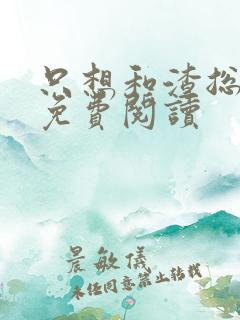 只想和渣总
免費閱讀
晨敏儀
未经同意禁止转载